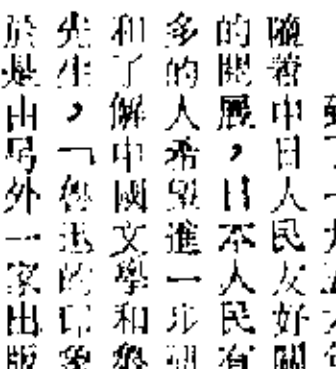 隨著中日人民友好關
的開展，日本人民有
多的人希望進一步
和了解中國文學和
先生，「魯迅的印象
於是由另外一家出版